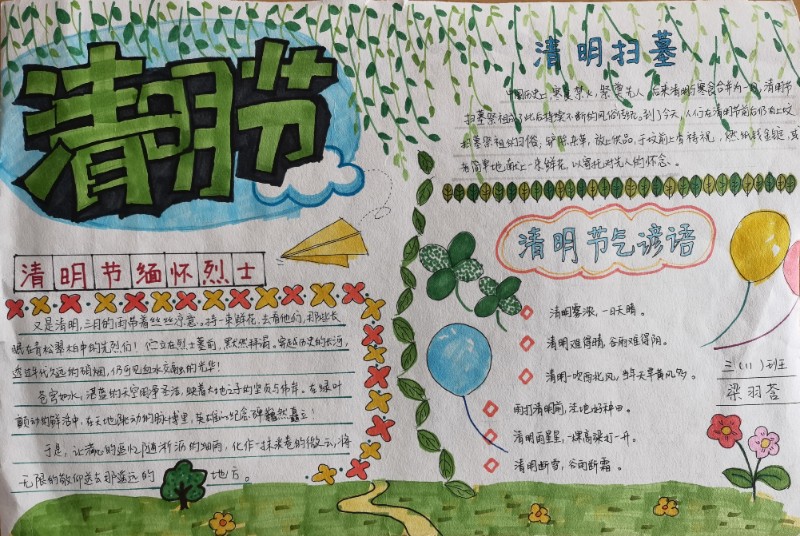 清明节
清明扫墓
中国历史上,寒食禁火,祭奠先人,后来清明与寒食合并为一,清明节
扫墓祭祖成了此后持续不断的风俗传统。到了今天,人们在清明节前后仍有上坟
扫墓祭祖的习俗:铲除杂草,放上供品,于坟前上香祷祝,燃纸钱金锭,或
者简单地献上一束鲜花,以寄托对先人的怀念。
清明节缅怀烈士
又是清明,三月的雨带着丝丝凉意。持一束鲜花,去看他们,那些长
眠在青松翠柏中的先烈们!伫立在烈士墓前,默然拜谒。穿越历史的长河,
透过年代久远的硝烟,仍可见血水交融的光华!
苍穹如水,湛蓝的天空周净圣洁,映着大地之子的坚贞与伟岸。在绿叶
颤动的鲜活中,在大地跳动的脉博里,英雄的纪念碑巍然矗立!
于是,让满心的追忆随淅沥的细雨,化作一抹米卷的微云,将
无限的敬仰送去那遥远的 地方。
清明节气谚语
清明雾浓,一日天晴。
清明难得晴,谷雨难得阴。
清明一吹西北风,当年天旱黄风多。
雨打清明前,洼地好种田。
清明雨星星,一棵高粱打一升。
清明断雪,谷雨断霜。
三(11)班
梁羽荟